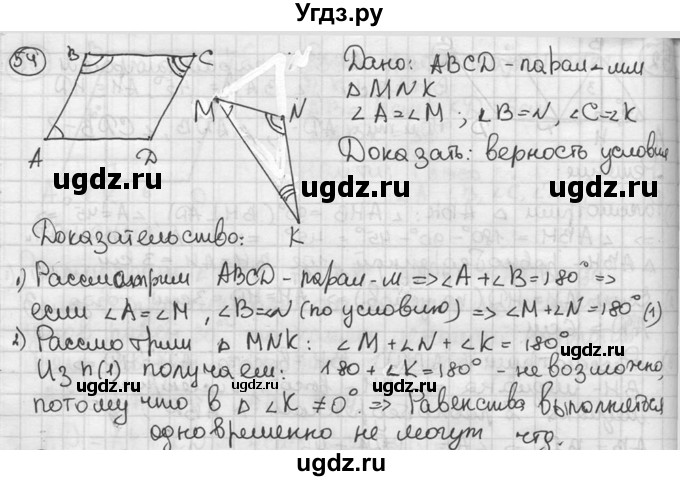 Угдз.ру
54
B C
A D
M N
K
Дано: ABCD - парал-мм
△ MNK
∠A=∠M ; ∠B=N, ∠C=∠K
Доказать: верность условия
ugdz.ru ugdz.ru
Доказательство:
1) Рассмотрим ABCD - парал-м => ∠A + ∠B = 180° =>
если ∠A=∠M, ∠B=∠N (по условию) => ∠M+∠N=180° (1)
2) Рассмотрим △ MNK: ∠M+∠N+∠K = 180°
ugdz.ru ugdz.ru
Из п(1) получаем: 180 + ∠K = 180° - невозможно,
потому что в △ ∠K ≠ 0°. => Равенства выполняется
ugdz.ru ugdz.ru
одновременно не могут чтд.
ugdz.ru